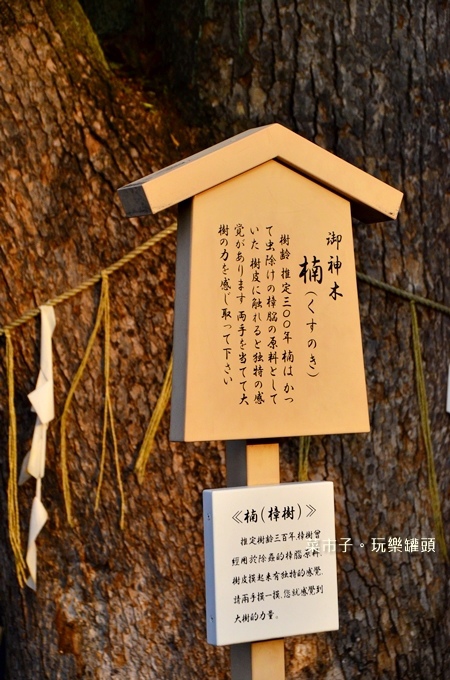 御神木
楠(くすのき)
樹齢 推定三〇〇年 楠は かつ
て虫除けの樟脳の原料として
いた 樹皮に触れると独特の感
覚があります 両手を当てて大
樹の力を感じ取って下さい
《楠(樟樹)》
推定樹齡三百年,樟樹曾
經用於除蟲的樟腦原料,
樹皮摸起來有獨特的感覺,
請兩手摸一摸,您就感覺到
大樹的力量。
菜市子。玩樂罐頭